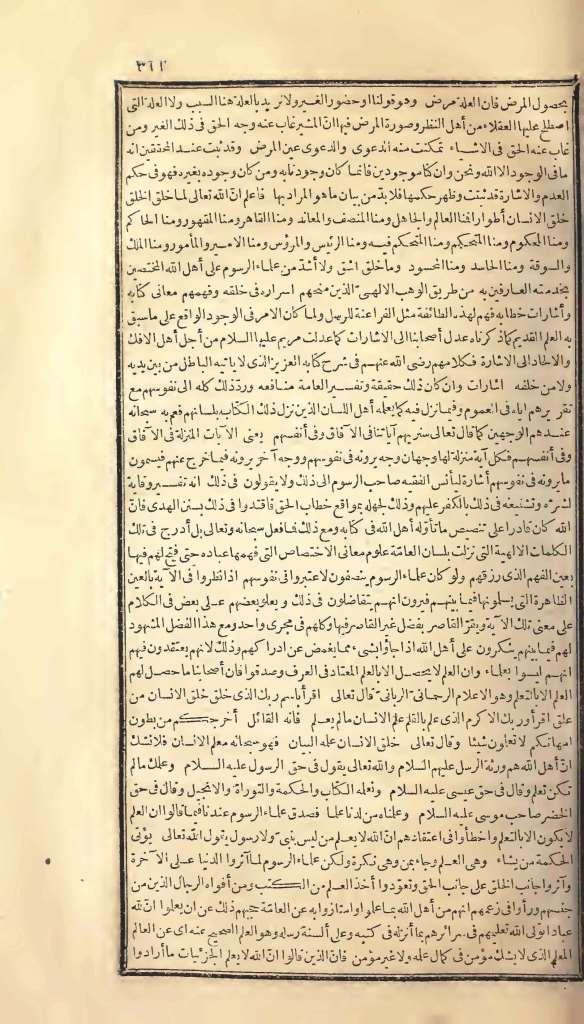 ٣٦٦
بحصول المرض فان العلة مرض وهو قولنا او حضور الغير ولا نريد بالعلة هنا السبب ولا العلة التي
اصطلح عليها العقلاء من أهل النظر وصورة المرض فيها ان المشير غاب عنه وجه الحق في ذلك الغير ومن
غاب عنه الحق في الاشياء تمكنت منه الدعوى والدعوى عين المرض وقد ثبت عند المحققين انه
ما في الوجود الا الله ونحن وان كنا موجودين فانما كان وجودنا به ومن كان وجوده بغيره فهو في حكم
العدم والاشارة قد ثبتت وظهر حكمها فلا بدّ من بيان ما هو المراد بها فاعلم انّ الله تعالى لما خلق الخلق
خلق الانسان أطوارا فمنا العالم والجاهل ومنا المنصف والمعاند ومنا القاهر ومنا المقهور ومنا الحاكم
ومنا المحكوم ومنا المتحكم ومنا المتحكم فيه ومنا الرئيس والمرؤس ومنا الامير والمأمور ومنا الملك
والسوقة ومنا الحاسد ومنا المحسود وما خلق اشق ولا أشدّ من علماء الرسوم على أهل الله المختصين
بخدمته العارفين به من طريق الوهب الالهىّ الذين منحهم اسراره في خلقه وفهمهم معانى كتابه
وأشارات خطابه فهم لهذه الطائفة مثل الفراعنة للرسل ولما كان الامر في الوجود الواقع على ما سبق
به العلم القديم كما ذكرناه عدل أصحابنا الى الاشارات كما عدلت مريم عليها السلام من أجل أهل الافك
والالحاد الى الاشارة فكلامهم رضى الله عنهم في شرح كتابه العزيز الذى لا يأتيه الباطل من بين يديه
ولا من خلفه اشارات وان كان ذلك حقيقة وتفسير العامة منافعه ورد ذلك كله الى نفوسهم مع
تقريرهم اياه في العموم وفيما نزل فيه كما يعلمه أهل اللسان الذين نزل ذلك الكتاب بلسانهم فعم به سبحانه
عندهم الوجهين كما قال تعالى سنريهم آياتنا في الآفاق وفى أنفسهم يعنى الآيات المنزلة في الآفاق
وفى أنفسهم فكل آية منزلة لها وجهان وجه يرونه في نفوسهم ووجه آخر يرونه فيما خرج عنهم فيسمون
ما يرونه في نفوسهم أشارة ليأنس الفقيه صاحب الرسوم الى ذلك ولا يقولون في ذلك انه تفسير وقاية
لشرّه وتشنيعه في ذلك بالكفر عليهم وذلك لجهله بمواقع خطاب الحق فاقتدوا في ذلك بسنن الهدى فانّ
الله كان قادرا على تنصيص ما تأوّله أهل الله في كتابه ومع ذلك فما فعل سبحانه وتعالى بل أدرج في تلك
الكلمات الالهية التي نزلت بلسان العامّة علوم معانى الاختصاص التي فهمها عباده حتى فتح لهم فيها
بعين الفهم الذى رزقهم ولو كان علماء الرسوم ينصفون لاعتبروا في نفوسهم اذا نظروا في الآية بالعين
الظاهرة التي يسلمونها فيما بينهم فيرون انهم يتفاضلون في ذلك ويعلو بعضهم على بعض في الكلام
على معنى تلك الآية ويقرّ القاصر بفضل غير القاصر فيها وكلهم في مجرى واحد ومع هذا الفضل المشهود
لهم فيما بينهم ينكرون على أهل الله اذا جاؤا بشىء مما يغمض عن ادراكهم وذلك لانهم يعتقدون فيهم
انهم ليسوا بعلماء وان العلم لا يحصل الا بالعلم المعتاد في العرف وصدقوا فان أصحابنا ما حصل لهم
العلم الا بالتعلم وهو الاعلام الرحمانىّ الربانىّ قال تعالى اقرأ باسم ربك الذى خلق خلق الانسان من
علق اقرأ وربك الاكرم الذى علم بالقلم علم الانسان ما لم يعلم فانه القائل أخرجكم من بطون
امهاتكم لا تعلمون شيئا وقال تعالى خلق الانسان علمه البيان فهو سبحانه معلم الانسان فلا نشك
انّ أهل الله هم ورثة الرسل عليهم السلام والله تعالى يقول في حق الرسول عليه السلام وعلمك ما لم
تكن تعلم وقال في حق عيسى عليه السلام ونعلمه الكتاب والحكمة والتوراة والانجيل وقال في حق
الخضر صاحب موسى عليه السلام وعلمناه من لدنا علما فصدق علماء الرسوم عندنا فيما قالوا ان العلم
لا يكون الا بالتعلم وأخطأوا في اعتقادهم انّ الله لا يعلم من ليس بنبىّ ولا رسول يقول الله تعالى يؤتى
الحكمة من يشاء وهى العلم وجاء بمن وهى نكرة ولكن علماء الرسوم لما آثروا الدنيا على الآخرة
وآثروا جانب الخلق على جانب الحق وتعوّدوا أخذ العلم من الكتب ومن أفواه الرجال الذين من
جنسهم ورأوا في زعمهم انهم من أهل الله بما علموا وامتازوا به عن العامّة حجبهم ذلك عن ان يعلموا انّ لله
عبادا تولى الله تعليمهم في سرائرهم بما أنزله في كتبه وعلى ألسنة رسله وهو العلم الصحيح عنه اى عن العالم
المعلم الذى لا يشك مؤمن في كمال علمه ولا غير مؤمن فانّ الذين قالوا انّ الله لا يعلم الجزئيات ما أرادوا